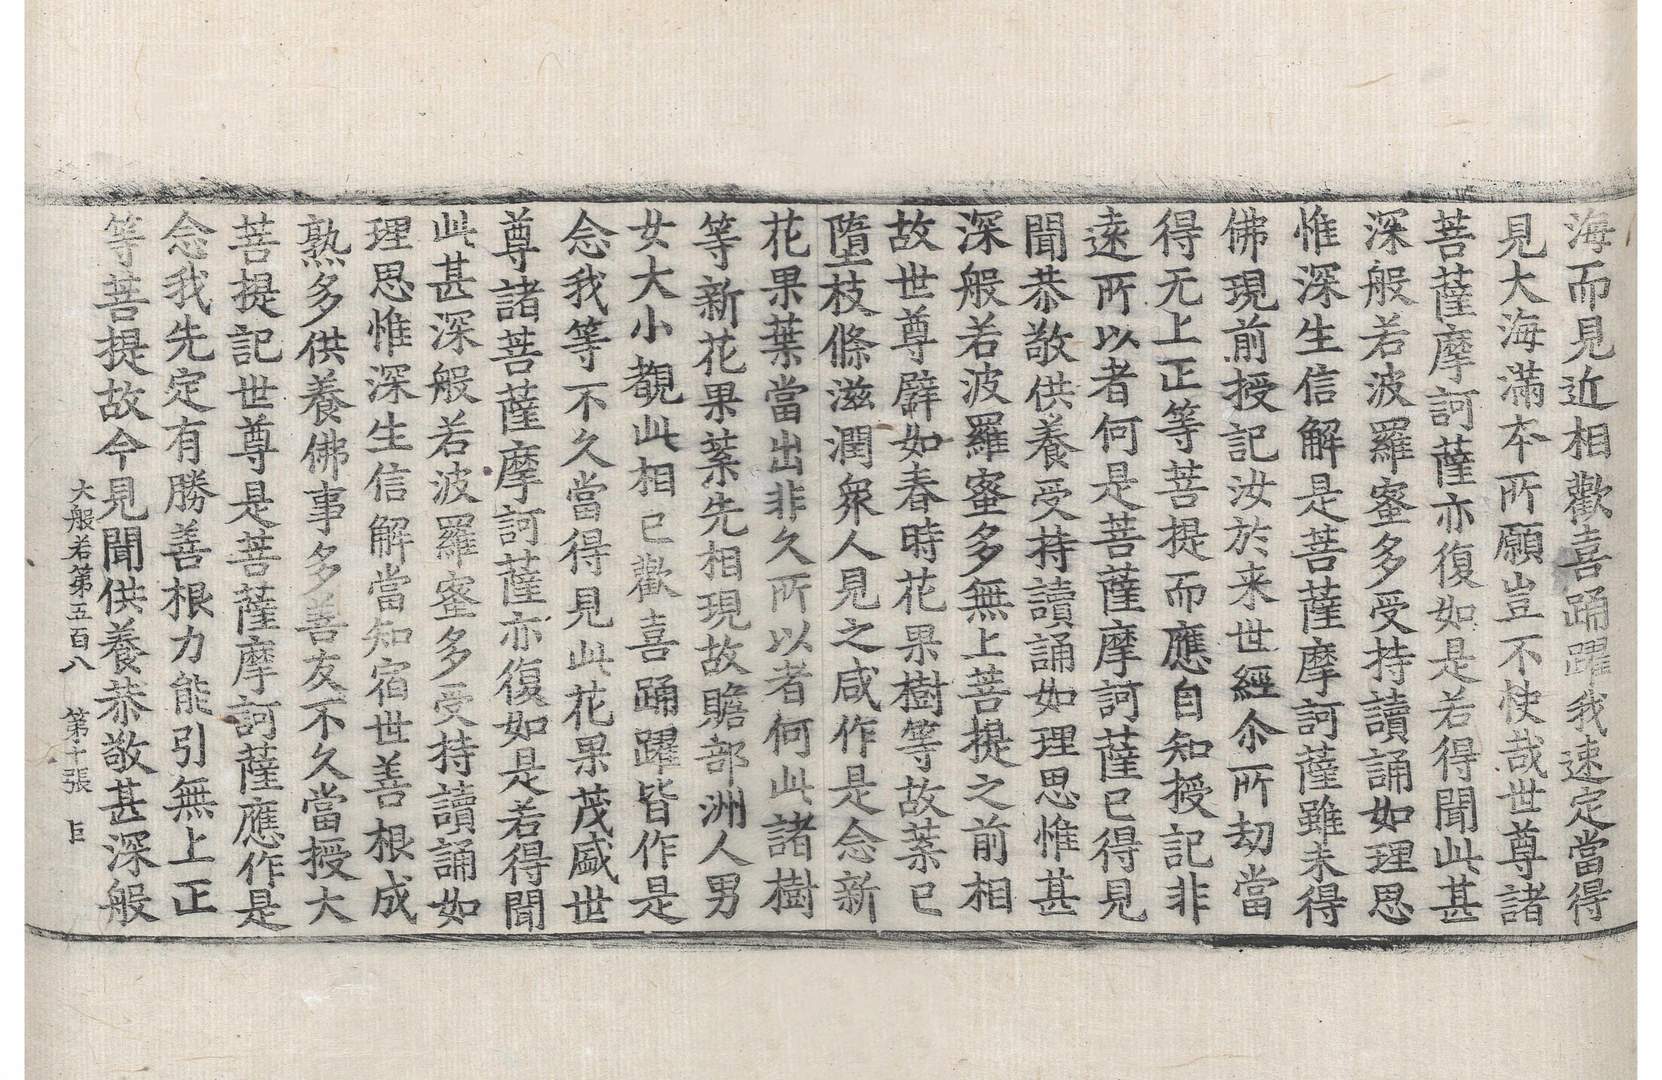 海而見近相歡喜踊躍我速定當得
見大海滿夲所願豈不快哉世尊諸
菩薩摩訶薩亦復如是若得聞此甚
深般若波羅蜜多受持讀誦如理思
惟深生信解是菩薩摩訶薩雖未得
佛現前授記汝於来世經尒所劫當
得无上正等菩提而應自知授記非
遠所以者何是菩薩摩訶薩已得見
聞恭敬供養受持讀誦如理思惟甚
深般若波羅蜜多無上菩提之前相
故世尊辟如春時花果樹等故葉已
墮枝條滋潤衆人見之咸作是念新
花果葉當出非久所以者何此諸樹
等新花果葉先相現故贍部洲人男
女大小覩此相已歡喜踊躍皆作是
念我等不久當得見此花果茂盛世
尊諸菩薩摩訶薩亦復如是若得聞
此甚深般若波羅蜜多受持讀誦如
理思惟深生信解當知宿世善根成
熟多供養佛事多善友不久當授大
菩提記世尊是菩薩摩訶薩應作是
念我先定有勝善根力能引無上正
等菩提故今見聞供養恭敬甚深般
大般若第五百八 第十張